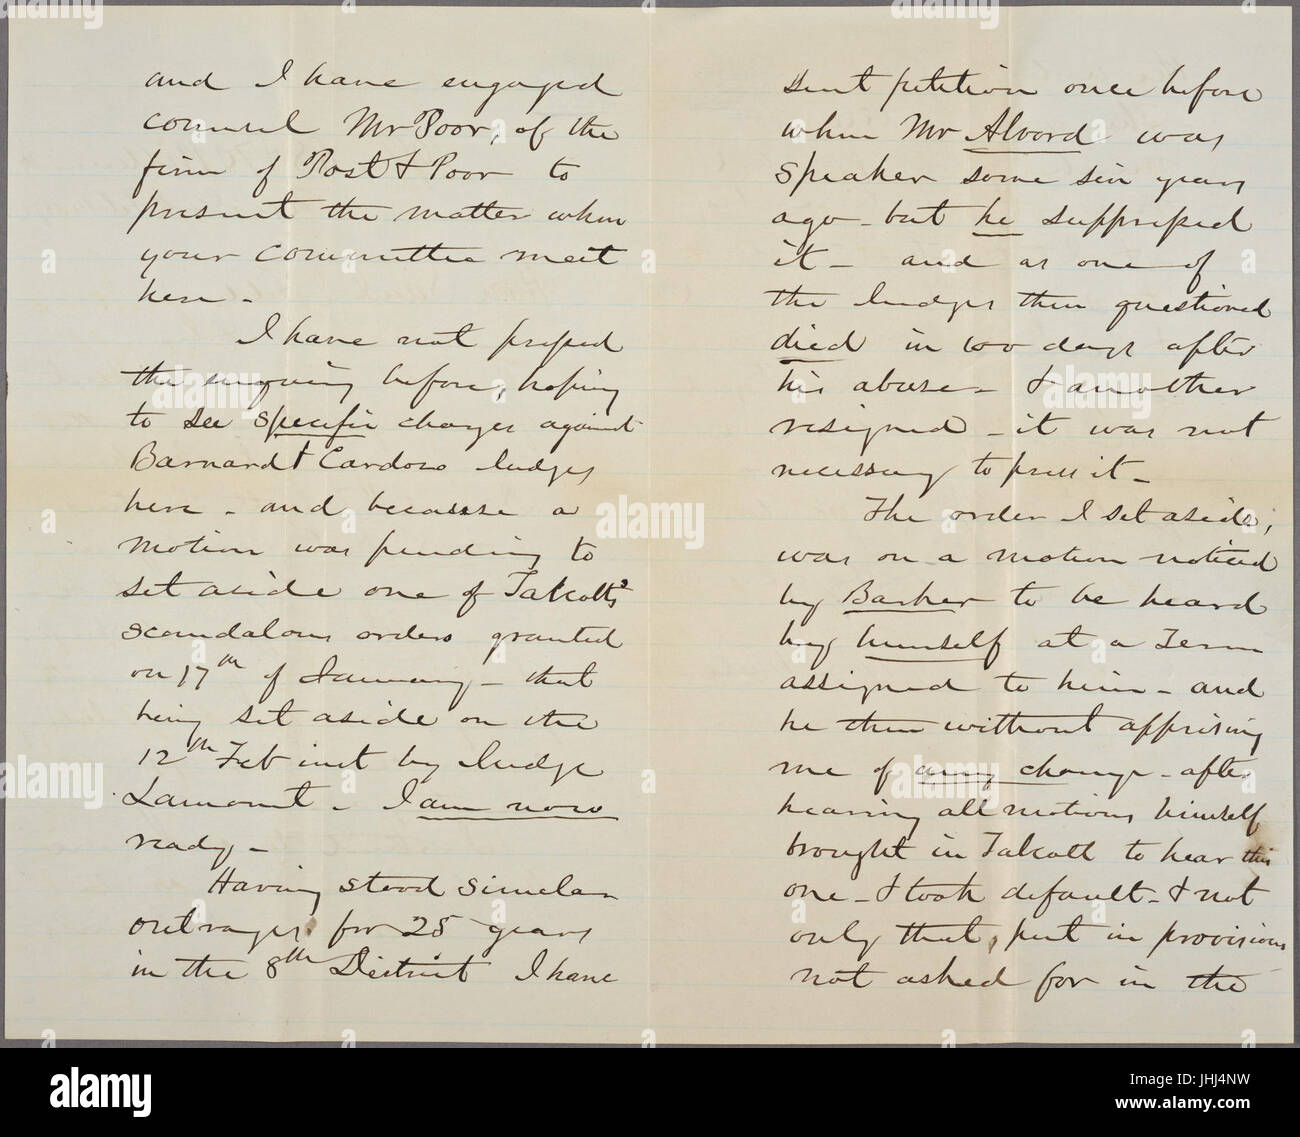 and I have engaged
counsel Mr Poor, of the
firm of Post & Poor to
present the matter when
your committee meet
here –
I have not pressed
the enquiry before, hoping
to see specific charges against
Barnard & Cardozo Judges
here – and because a
motion was pending to
set aside one of Talcotts
scandalous orders granted
on 17th of January – that
being set aside on the
12th Feb inst by Judge
Lamont – I am now
ready –
Having stood similar
outrages for 25 years
in the 8th District I have
sent petition once before
when Mr Alvord was
speaker some six years
ago – but he suppressed
it – and as one of
the Judges then questioned
died in two days after
his abuse – & another
resigned – it was not
necessary to press it –
The order I set aside,
was on a motion noticed
by Barker to be heard
by himself at a Term
assigned to him – and
he then without apprising
me of any change – after
hearing all motions himself
brought in Talcott to hear this
one – & took default – & not
only that, put in provisions
not asked for in the
a alamy stock photo
alamy
Image ID: JHJ4NW
www.alamy.com